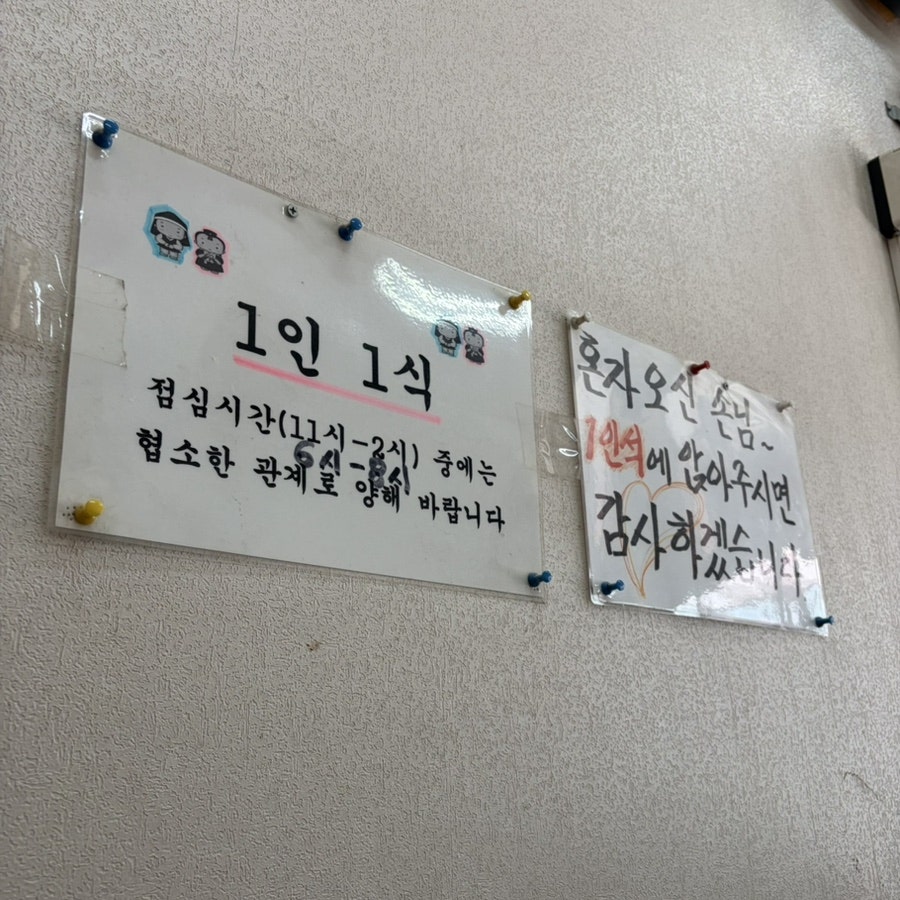 1인 1식
점심시간(11시-2시) 중에는
6시-8시
협소한 관계로 양해 바랍니다
혼자 오신 손님~
1인석에 앉아주시면
감사하겠습니다